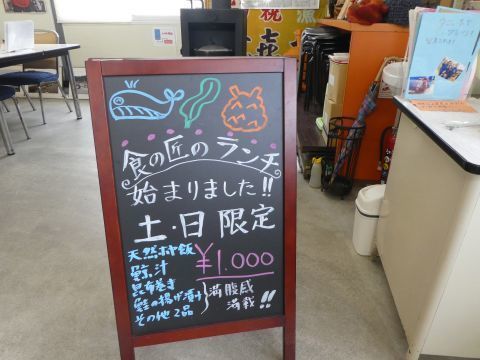 食の匠のランチ
始まりました!!
土・日限定
天然ホヤ飯
鯨汁
昆布巻き
鮭の揚げ漬け
その他2品
¥1,000
満腹感
満載!!
祝